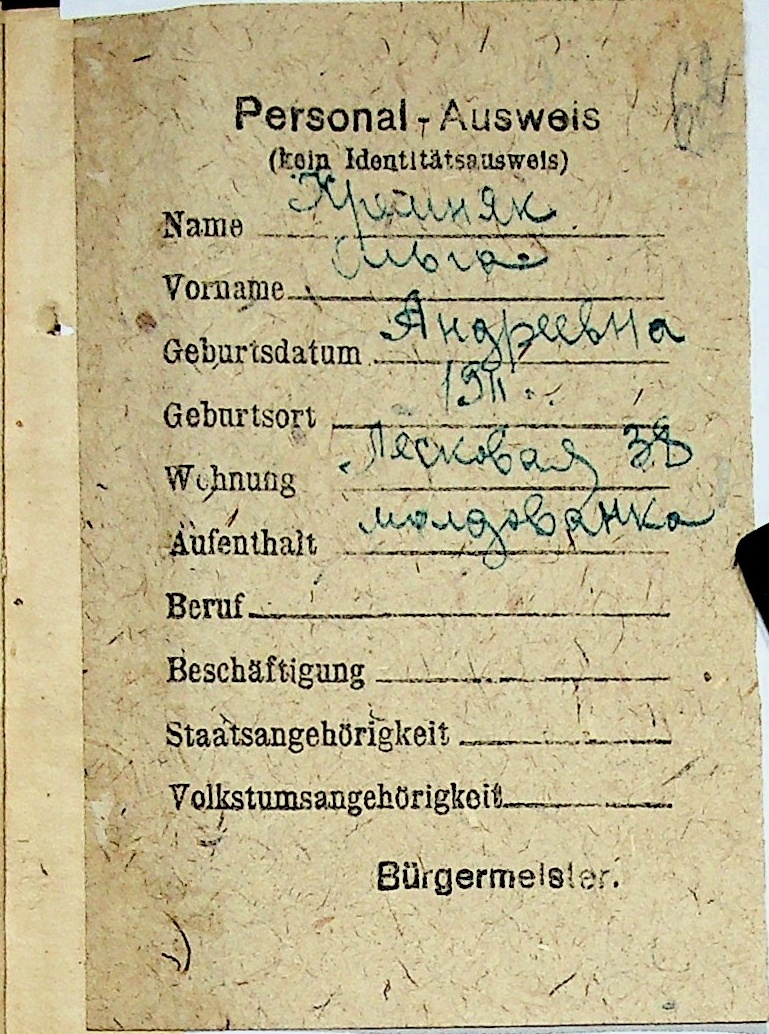 Personal - Ausweis
(kein Identitätsausweis)
Name
Vorname Ольга
Geburtsdatum Андреевна
Geburtsort 1911
Wohnung Песковая 38
Aufenthalt молдованка
Beruf
Beschäftigung
Staatsangehörigkeit
Volkstumsangehörigkeit
Bürgermeister.